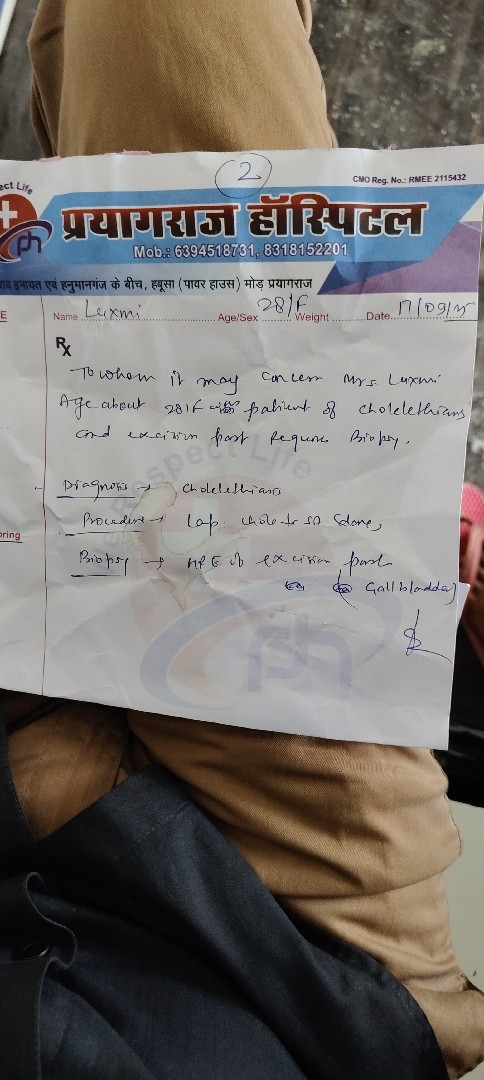 2
CMO Reg. No.: RMEE 2115432
ect Life
प्रयागराज हॉस्पिटल
Mob.: 6394518731, 8318152201
इनायत एवं हनुमानगंज के बीच, हबूसा (पावर हाउस) मोड़ प्रयागराज
E
Name Luxmi Age/Sex 28/F Weight Date 17/09/25
Rx
To whom it may concern Mrs Luxmi
Age about 28/F patient of cholelethians
and excision part Require Biopsy.
spect Life
Diagnosis → cholelethians
oring
Procedure → Lap. chole
Biopsy → HPE of excision part
Gallbladder
ph